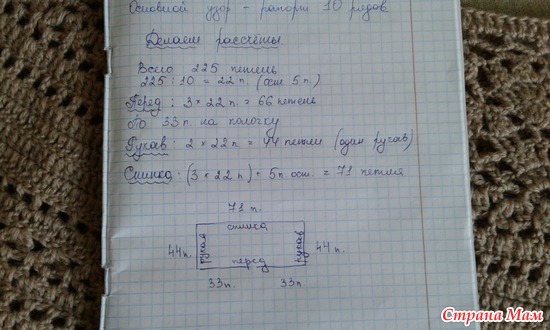 Основной узор - рапорт 10 рядов
Делаем рассчёты
Всего 225 петель
225 : 10 = 22 п. (ост 5 п.)
Перед : 3 × 22 п. = 66 петель
По 33 п. на полочку
Рукав : 2 × 22 п. = 44 петли (один рукав)
Спинка : (3 × 22 п) + 5 п ост. = 71 петля
71 п.
спинка
44 п. рукав рукав 44 п.
перед
33 п. 33 п
Страна Мам